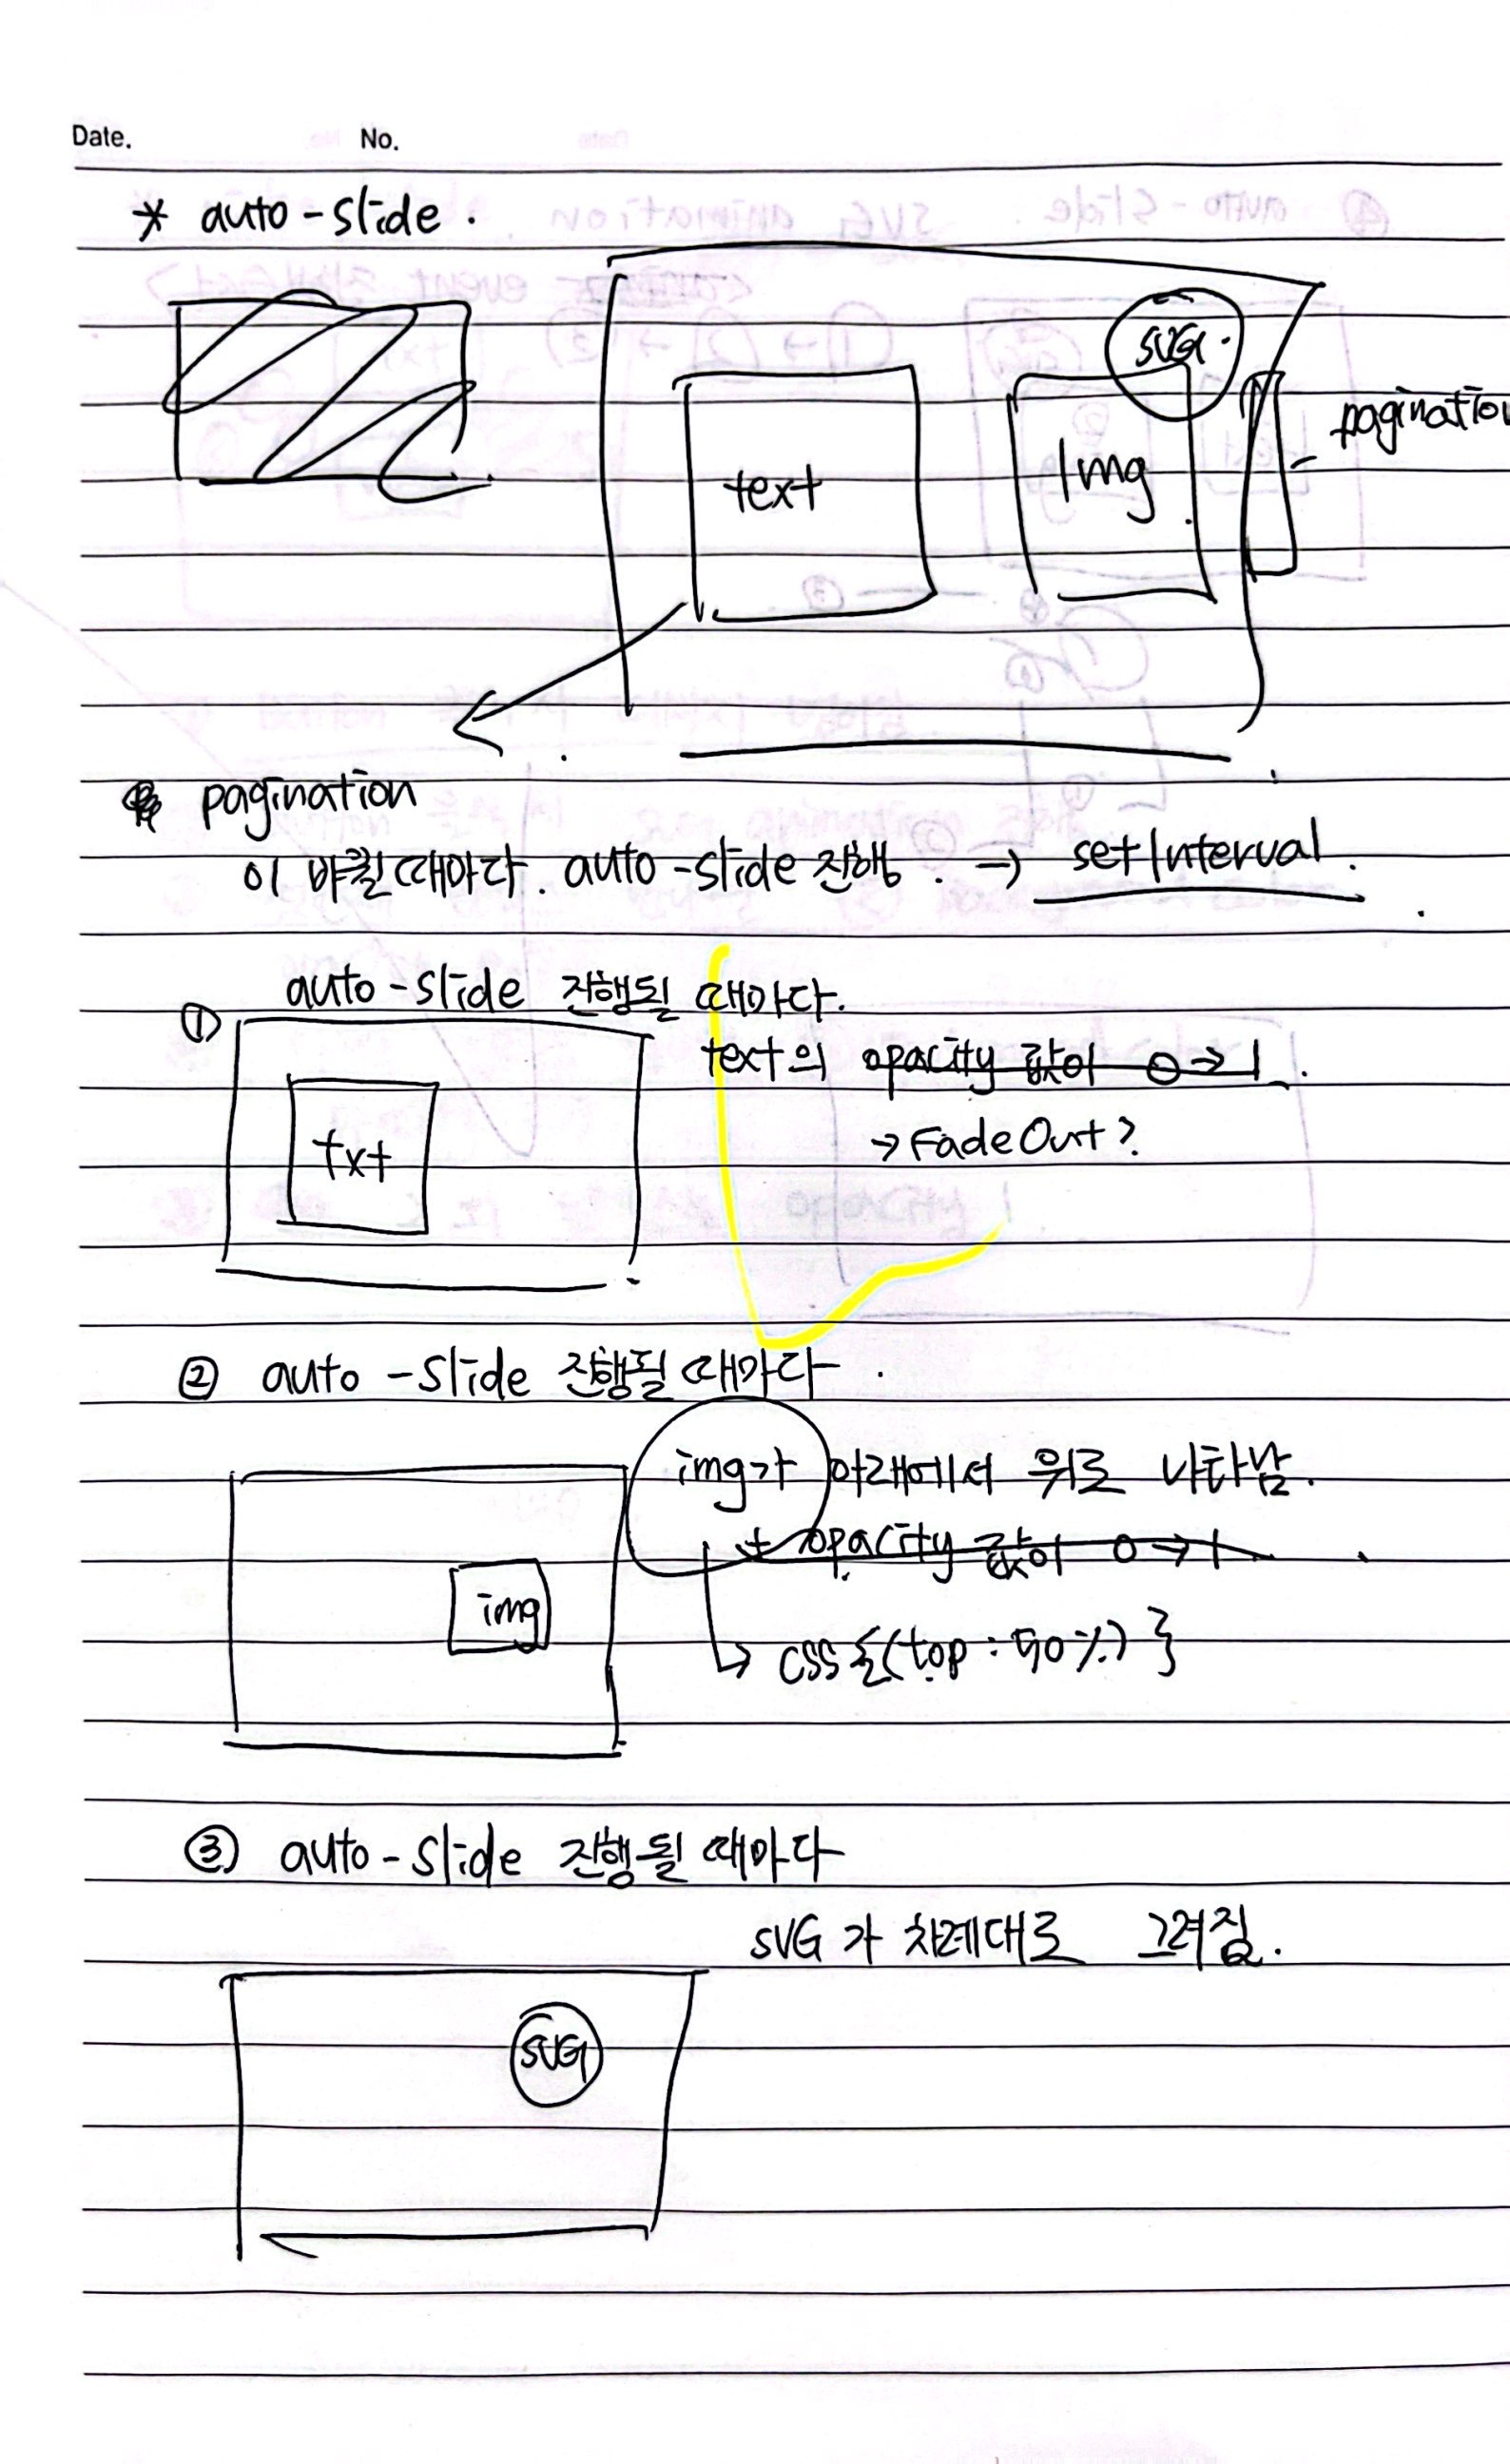 Date. No.
* auto-slide.
SVG.
text
Img
pagination
pagination
이 바뀔때마다. auto-slide 진행. → setInterval.
auto-slide 진행될 때마다.
①
text의 opacity 값이 0→1.
→ FadeOut?
txt
② auto-slide 진행될 때마다.
img가 아래에서 위로 나타남.
+ opacity 값이 0→1
img
↳ css {(top: 50%) }
③ auto-slide 진행될 때마다
SVG가 차례대로 그려짐.
SVG